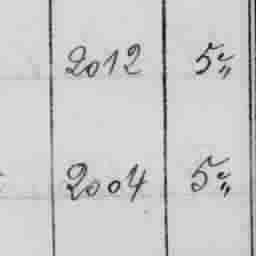 2012 5 „
2004 5 „